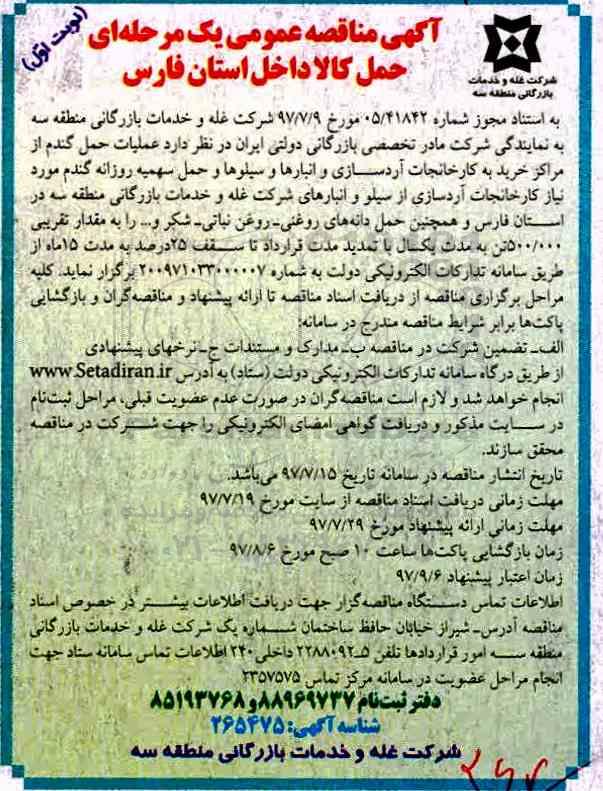 آگهی مناقصه عمومی یک مرحله‌ای
حمل کالا داخل استان فارس
(نوبت اول)
شرکت غله و خدمات
بازرگانی منطقه سه
به استناد مجوز شماره ۰۵/۴۱۸۴۲ مورخ ۹۷/۷/۹ شرکت غله و خدمات بازرگانی منطقه سه
به نمایندگی شرکت مادر تخصصی بازرگانی دولتی ایران در نظر دارد عملیات حمل گندم از
مراکز خرید به کارخانجات آردسازی و انبارها و سیلوها و حمل سهمیه روزانه گندم مورد
نیاز کارخانجات آردسازی از سیلو و انبارهای شرکت غله و خدمات بازرگانی منطقه سه در
استان فارس و همچنین حمل دانه‌های روغنی_روغن نباتی_شکر و... را به مقدار تقریبی
۵۰۰/۰۰۰تن به مدت یکسال با تمدید مدت قرارداد تا سقف ۲۵درصد به مدت ۱۵ماه از
طریق سامانه تدارکات الکترونیکی دولت به شماره ۲۰۰۹۷۱۰۳۳۰۰۰۰۰۷ برگزار نماید. کلیه
مراحل برگزاری مناقصه از دریافت اسناد مناقصه تا ارائه پیشنهاد و مناقصه‌گران و بازگشایی
پاکت‌ها برابر شرایط مناقصه مندرج در سامانه:
الف_تضمین شرکت در مناقصه ب_مدارک و مستندات ج_نرخهای پیشنهادی
از طریق درگاه سامانه تدارکات الکترونیکی دولت (ستاد) به آدرس www.Setadiran.ir
انجام خواهد شد و لازم است مناقصه‌گران در صورت عدم عضویت قبلی، مراحل ثبت‌نام
در سایت مذکور و دریافت گواهی امضای الکترونیکی را جهت شرکت در مناقصه
محقق سازند.
تاریخ انتشار مناقصه در سامانه تاریخ ۹۷/۷/۱۵ می‌باشد.
مهلت زمانی دریافت اسناد مناقصه از سایت مورخ ۹۷/۷/۱۹
مهلت زمانی ارائه پیشنهاد مورخ ۹۷/۷/۲۹
زمان بازگشایی پاکت‌ها ساعت ۱۰ صبح مورخ ۹۷/۸/۶
زمان اعتبار پیشنهاد ۹۷/۹/۶
اطلاعات تماس دستگاه مناقصه‌گزار جهت دریافت اطلاعات بیشتر در خصوص اسناد
مناقصه آدرس_شیراز خیابان حافظ ساختمان شماره یک شرکت غله و خدمات بازرگانی
منطقه سه امور قراردادها تلفن ۵_۲۲۸۸۰۹۲ داخلی۲۴۰ اطلاعات تماس سامانه ستاد جهت
انجام مراحل عضویت در سامانه مرکز تماس: ۲۳۵۷۵۷۵
دفتر ثبت‌نام ۸۸۹۶۹۷۳۷ و ۸۵۱۹۳۷۶۸
شناسه آگهی: ۲۶۵۴۷۵
شرکت غله و خدمات بازرگانی منطقه سه